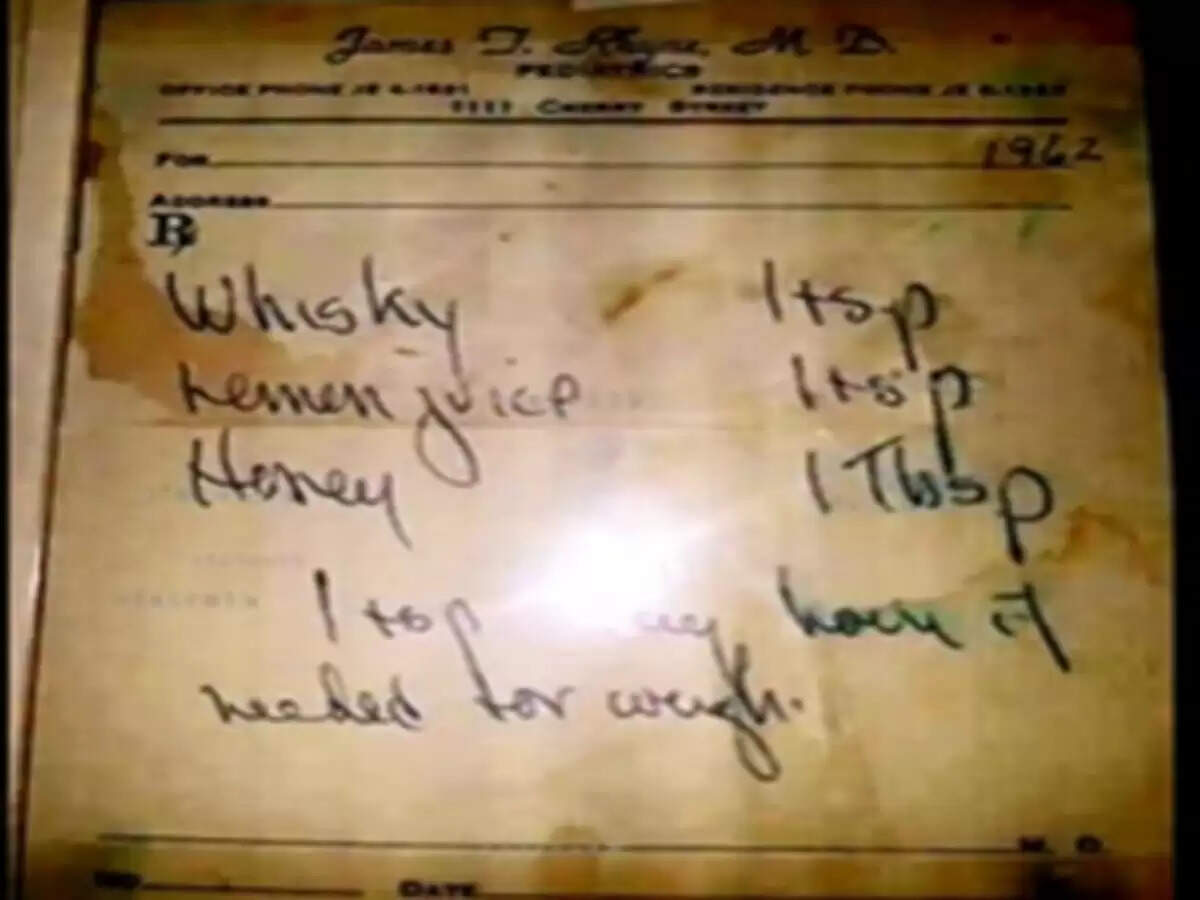 James T. M. D.
PEDIATRICS
OFFICE PHONE JE 4-1881 RESIDENCE PHONE JE
1111 CHERRY STREET
FOR 1962
ADDRESS
Rx
Whisky 1 tsp
Lemon juice 1 tsp
Honey 1 Tbsp
1 tsp hour if
needed for cough.
M. D.
NO DATE